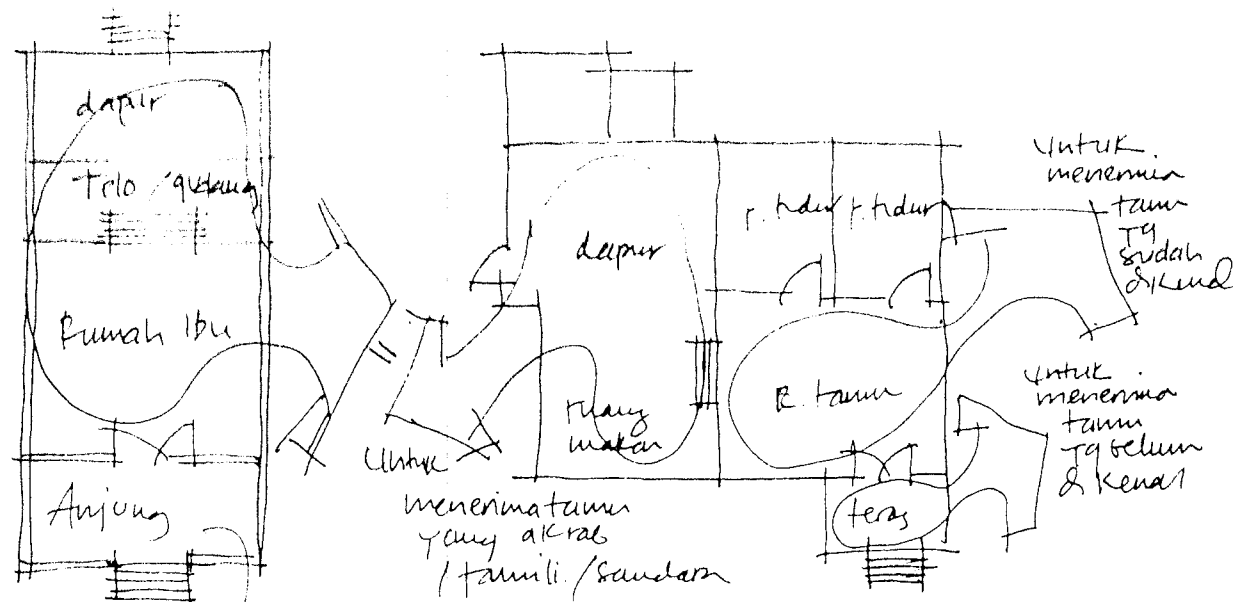 dapur
Telo / gudang
Rumah Ibu
Anjung
Untuk
menerima tamu
yang akrab
/ famili / saudara
dapur
ruang
makan
r. tidur r. tidur
R. tamu
teras
Untuk
menerima
tamu
yg
sudah
dikenal
Untuk
menerima
tamu
yg belum
dikenal